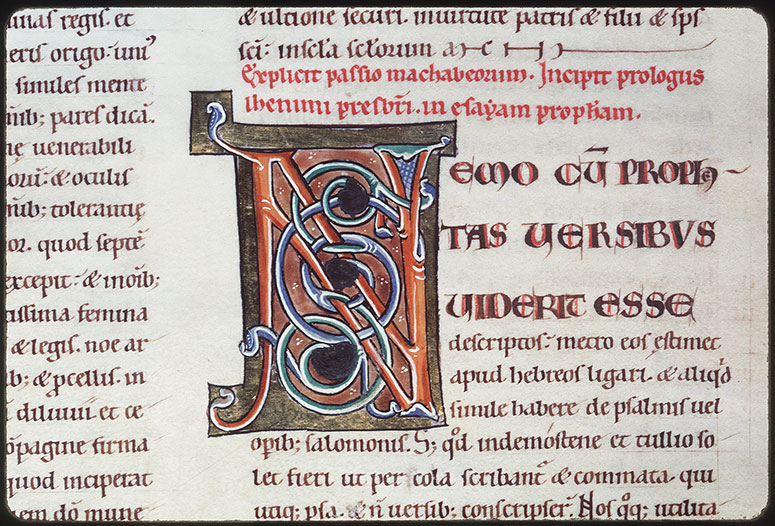 unas regis. et
eris origo. uni᾽
similes mente
nib; pares dicā.
ne uenerabili
orū. & oculis
nib; tolerantię
or. quod septē
excepit. & inoīb;
tissima femina
& legis. noe ar
b; & ꝓcellis. in
diluuii et ce
ōpagine firma
quod inciperat
em dō mune
& ultione securi. inuirtute patris & filii & sps
sci. inscła scłorum am̅
Explicit passio machabeorum. Incipit prologus
iheronimi presbri. in esayam propham.
NEMO CŪ PROPHE
TAS UERSIBUS
UIDERIT ESSE
descriptos. metro eos estimet
apud hebreos ligari. & aliqd
simile habere de psalmis uel
opib; salomonis. S; qd indemostene et tullio so
let fieri ut per cola scribant̾ & commata. qui
utiq; psa. & n̄ uersib; conscripser̄. Nos qq; utilita